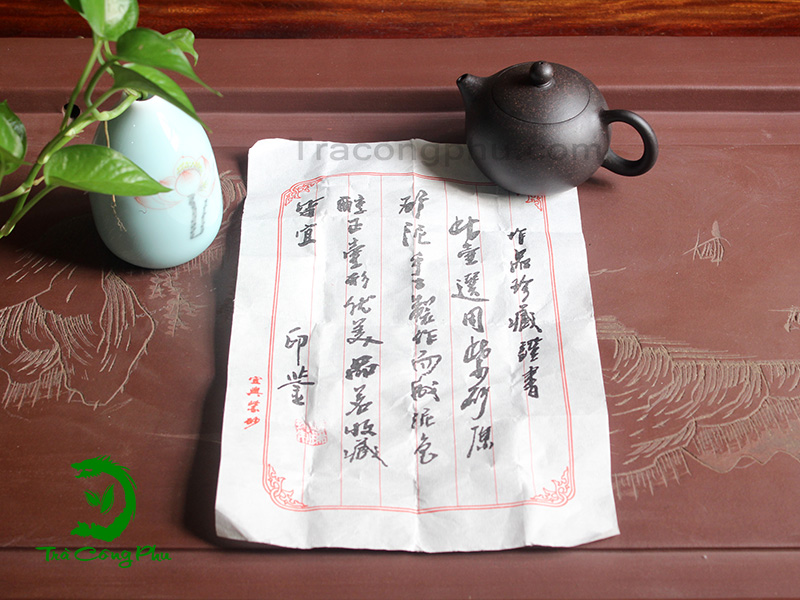 Tracongphu.com
作品珍藏證書
此壺選用紫砂原
矿泥手工製作而成泥色
醇正壺形优美品茗收藏
皆宜
印鉴
宜興紫砂
Trà Công Phu